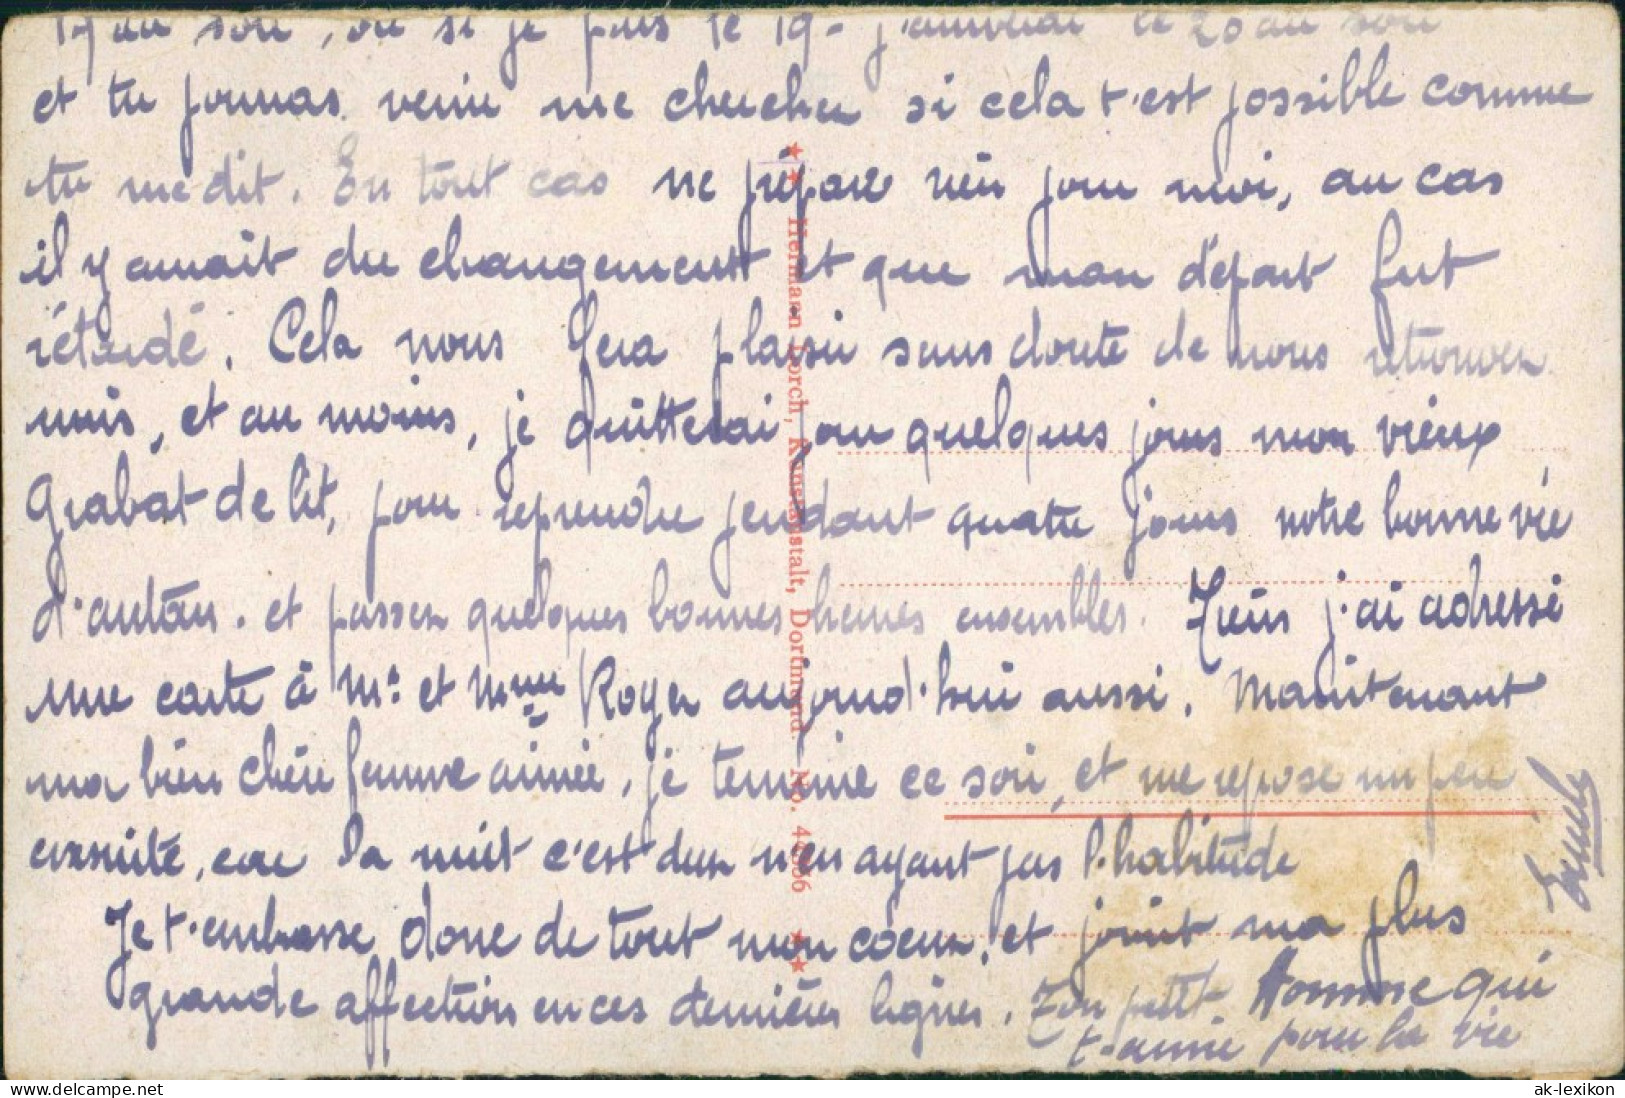 19 au soir, ou si je pars le 19. j'arriverai le 20 au soir
et tu pourras venir me chercher si cela t'est possible comme
tu me dit. En tout cas ne prépare rien pour moi, au cas
il y aurait du changement et que mon départ fut
rétardé. Cela nous fera plaisir sans doute de nous retrouver
unis, et au moins, je quitterai pour quelques jours mon vieux
Grabat de lit, pour reprendre pendant quatre jours notre bonne vie
d'antan. et passer quelques bonnes heures ensembles. Tiens j'ai adressé
une carte à Mr et Mme Roger aujourd'hui aussi. Maintenant
ma bien chère femme aimée, je termine ce soir, et me repose un peu
ensuite, car la nuit c'est dur n'en ayant pas l'habitude
Je t'embrasse donc de tout mon coeur, et joint ma plus
grande affection en ces dernières lignes. Ton petit Homme qui
t'aime pour la vie
★★ Hermann Lorch, Kunstanstalt, Dortmund. No. 44566 ★★
ak-lexikon
delcampe.net